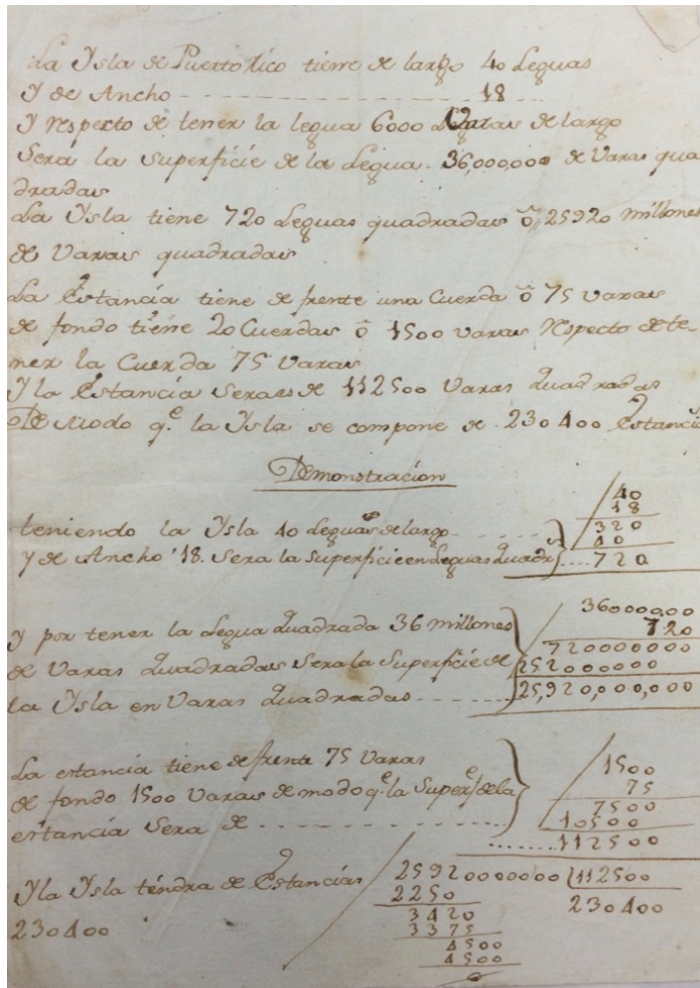 La Ysla de Puerto Rico tiene de largo 40 Leguas
Y de Ancho - - - - - - - - - - - - 18 - - - -
Y respecto de tener la legua 6000 Varas de largo
Sera la Superficie de la Legua. 36,000,000 de Varas qua
dradas
La Ysla tiene 720 Leguas quadradas ô 25920 millones
de Varas quadradas
La Estancia tiene de frente una Cuerda ô 75 varas
de fondo tiene 20 Cuerdas ô 1500 varas respecto de te-
ner la Cuerda 75 Varas
Y la Estancia Sera de 112500 Varas Quadradas
De Modo q.e la Ysla se compone de 230400 Estancias
Demonstracion
teniendo la Ysla 40 Leguas de largo - - - - -
Y de Ancho 18. Sera la Superficie en Leguas Quadr.s
40
18
320
40
.... 720
Y por tener la Legua Quadrada 36 millones
de Varas Quadradas Sera la Superficie de
la Ysla en Varas Quadradas - - - - - -
36000000
720
720000000
252000000
25,920,000,000
La estancia tiene de frente 75 Varas
de fondo 1500 Varas de modo q.e la Superf.e de la
estancia Sera de - - - - - - - - - - -
1500
75
7500
10500
......112500
Y la Ysla tendra de Estancias
230400
25920000000 112500
2250 230400
3420
3375
4500
4500
0